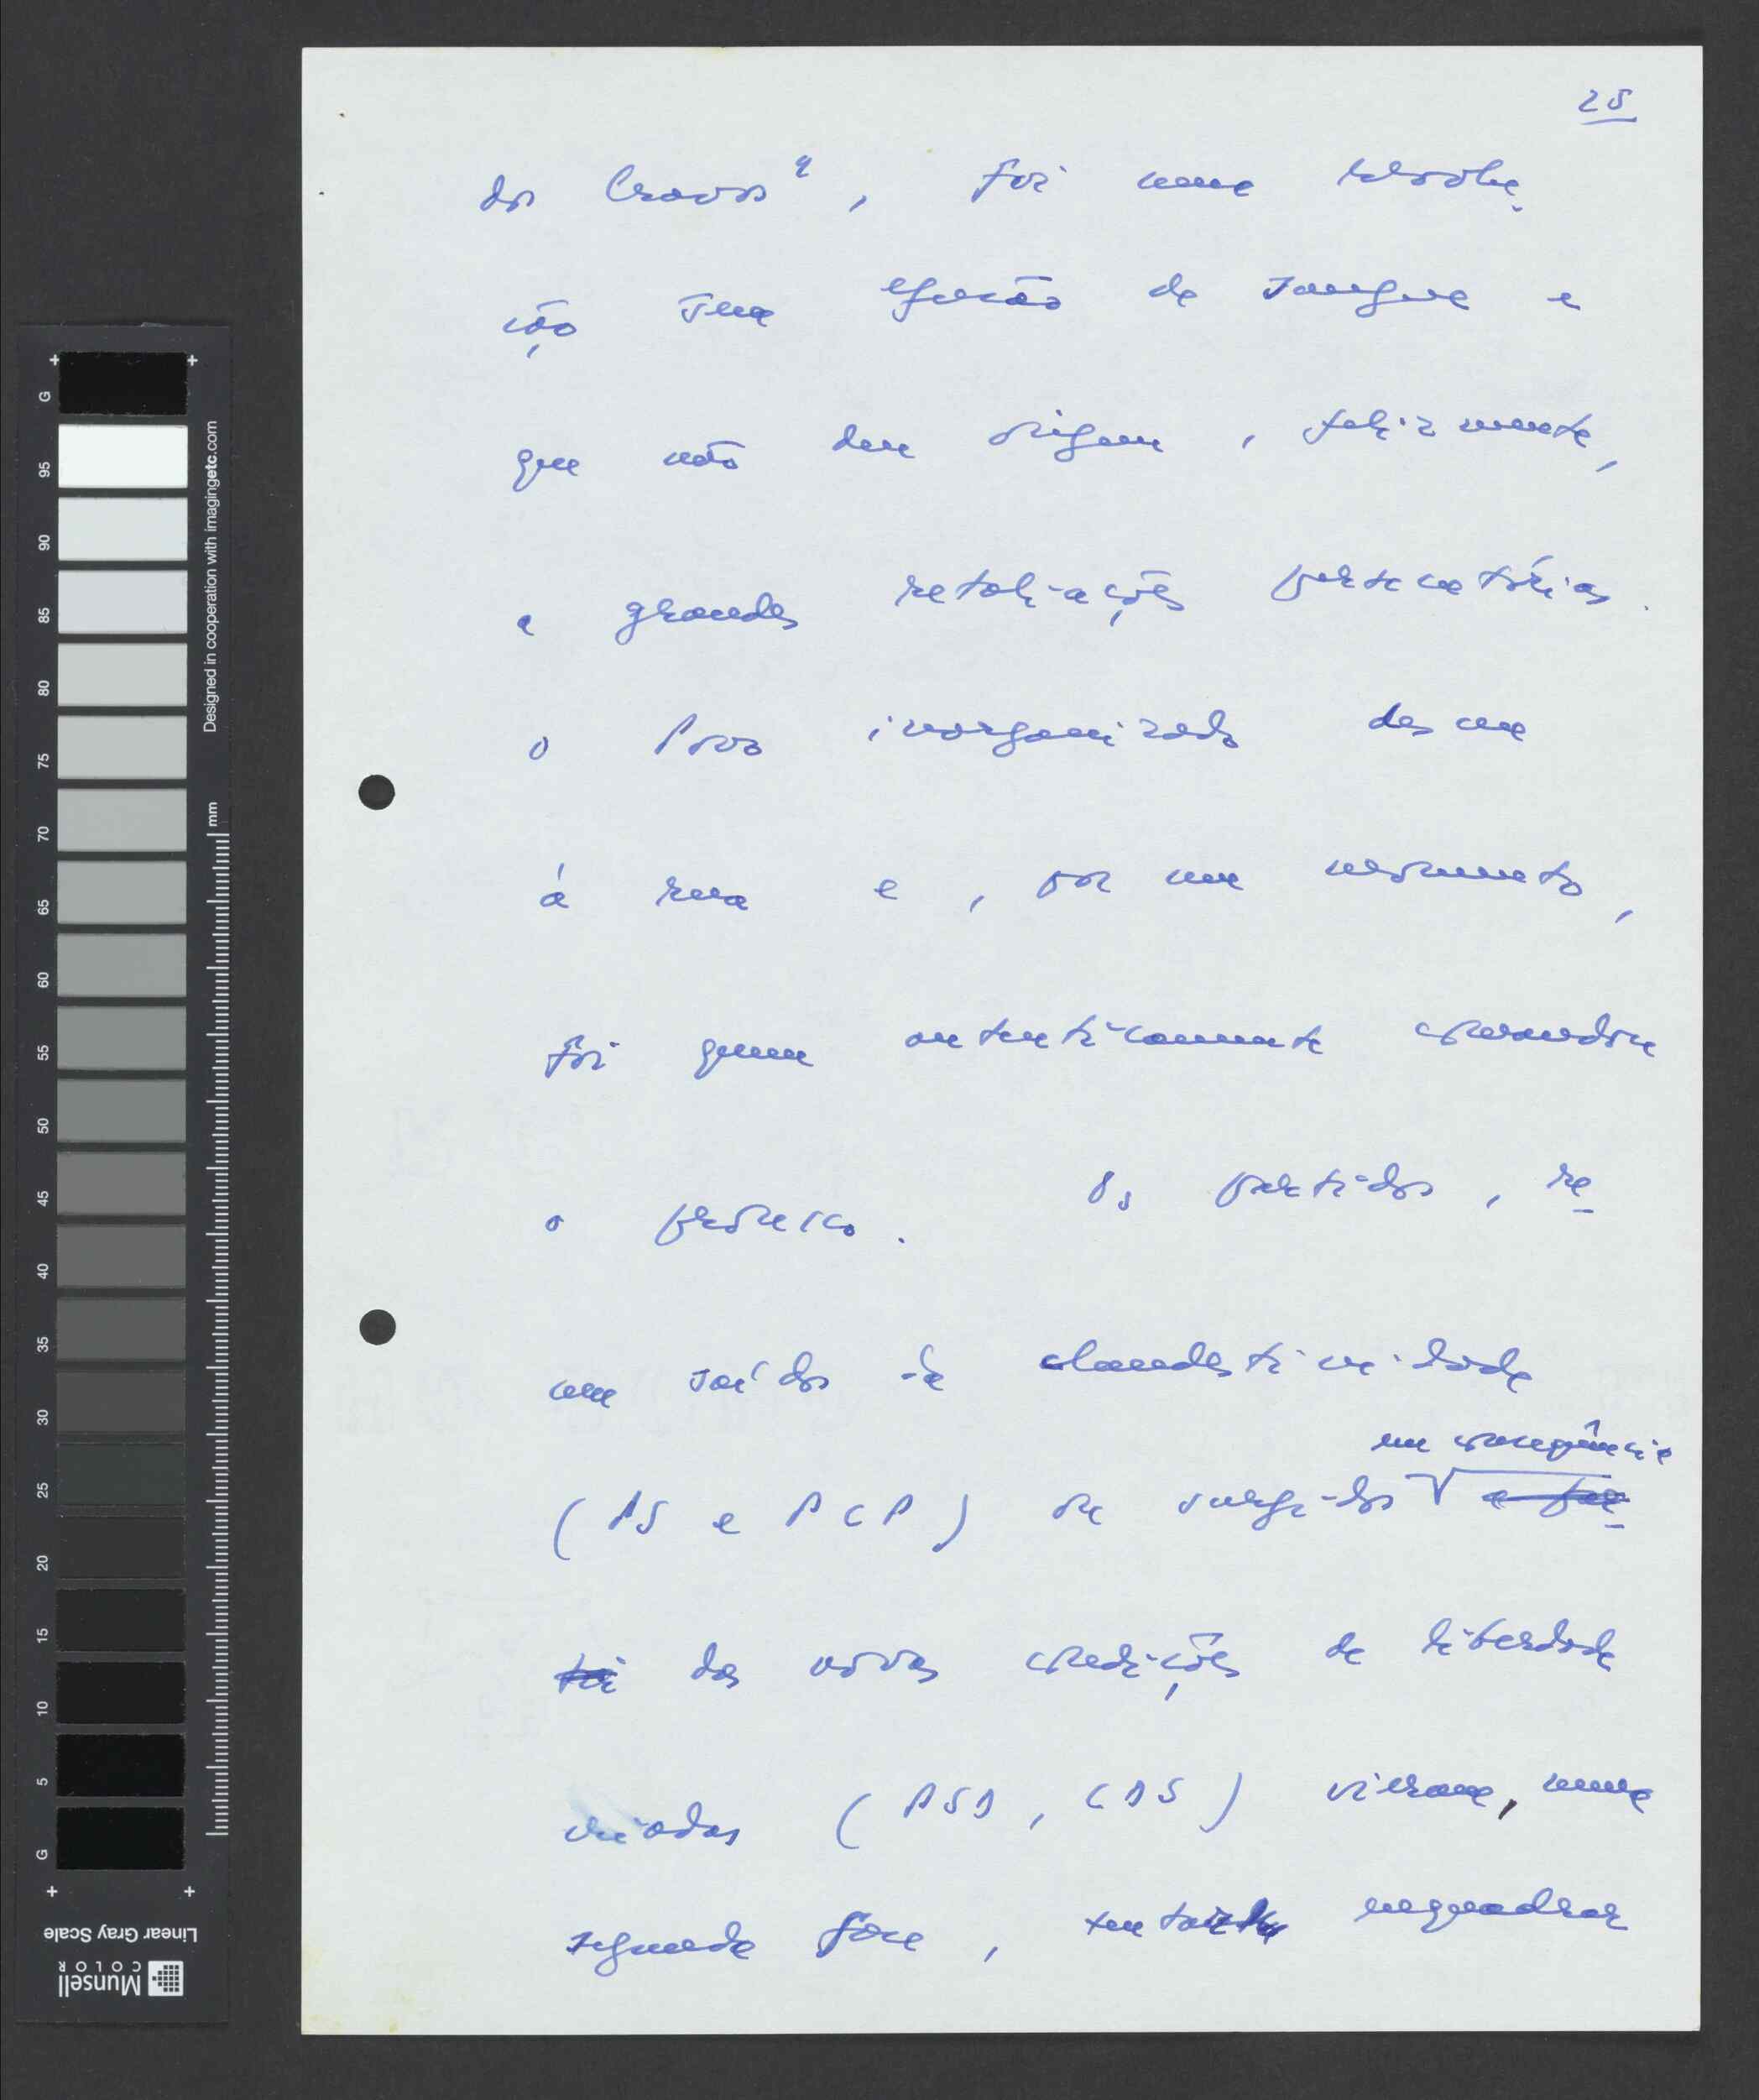 25
dos Cravos", foi uma revolu-
ção sem efusão de sangue e
que não deu origem, felizmente,
a grandes retaliações persecutórias.
O Povo inorganizado desceu
à rua e, por um momento,
foi quem autenticamente comandou
o processo. Os partidos, re-
cem saídos da clandestinidade
em consequência
(PS e PCP) ou surgidos a par-
tir das novas condições de liberdade
criadas (PSD, CDS) vieram, numa
segunda fase, tentar enquadrar
G 95 90 85 80 75 70 65 60 55 50 45 40 35 30 25 20 15 10 5 G
Designed in cooperation with imagingetc.com
mm
Linear Gray Scale
Munsell
COLOR